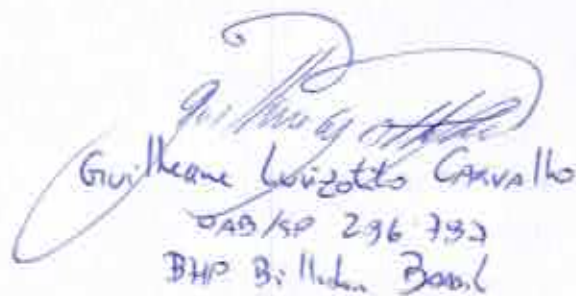 Guilherme Luvizotto Carvalho
OAB/SP 296 793
BHP Billiton Brasil